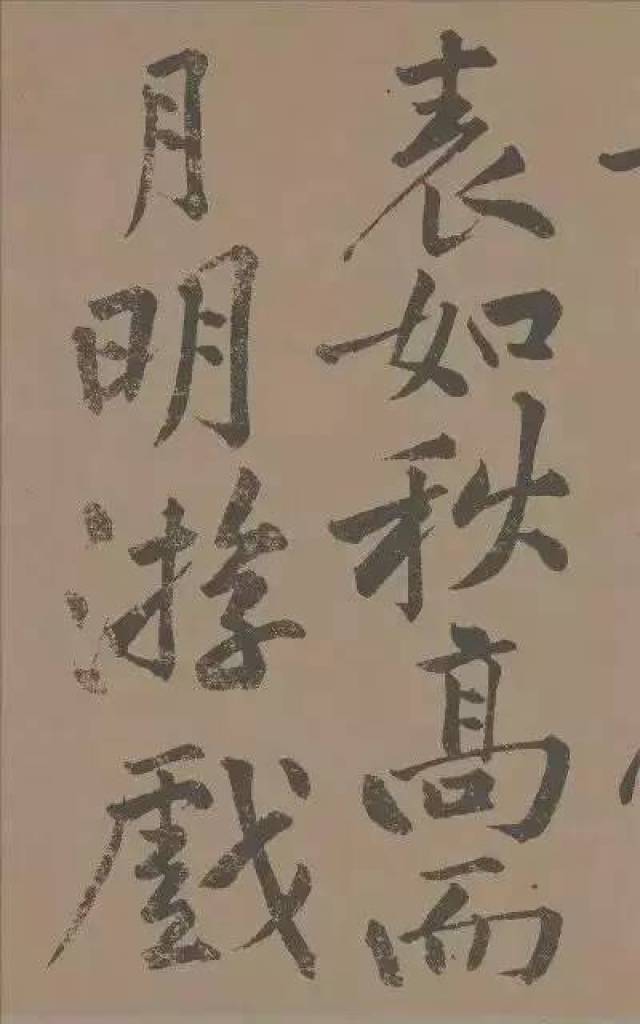 表如秋高而
月明游戲